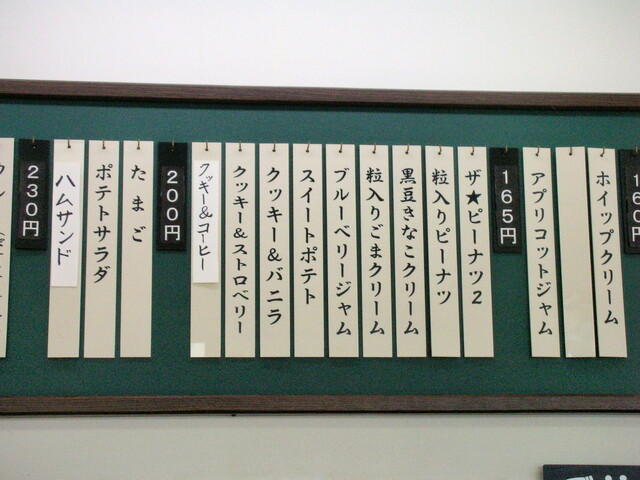 160円
ホイップクリーム
アプリコットジャム
165円
ザ★ピーナツ2
粒入りピーナツ
黒豆きなこクリーム
粒入りごまクリーム
ブルーベリージャム
スイートポテト
クッキー&バニラ
クッキー&ストロベリー
クッキー&コーヒー
200円
たまご
ポテトサラダ
ハムサンド
230円